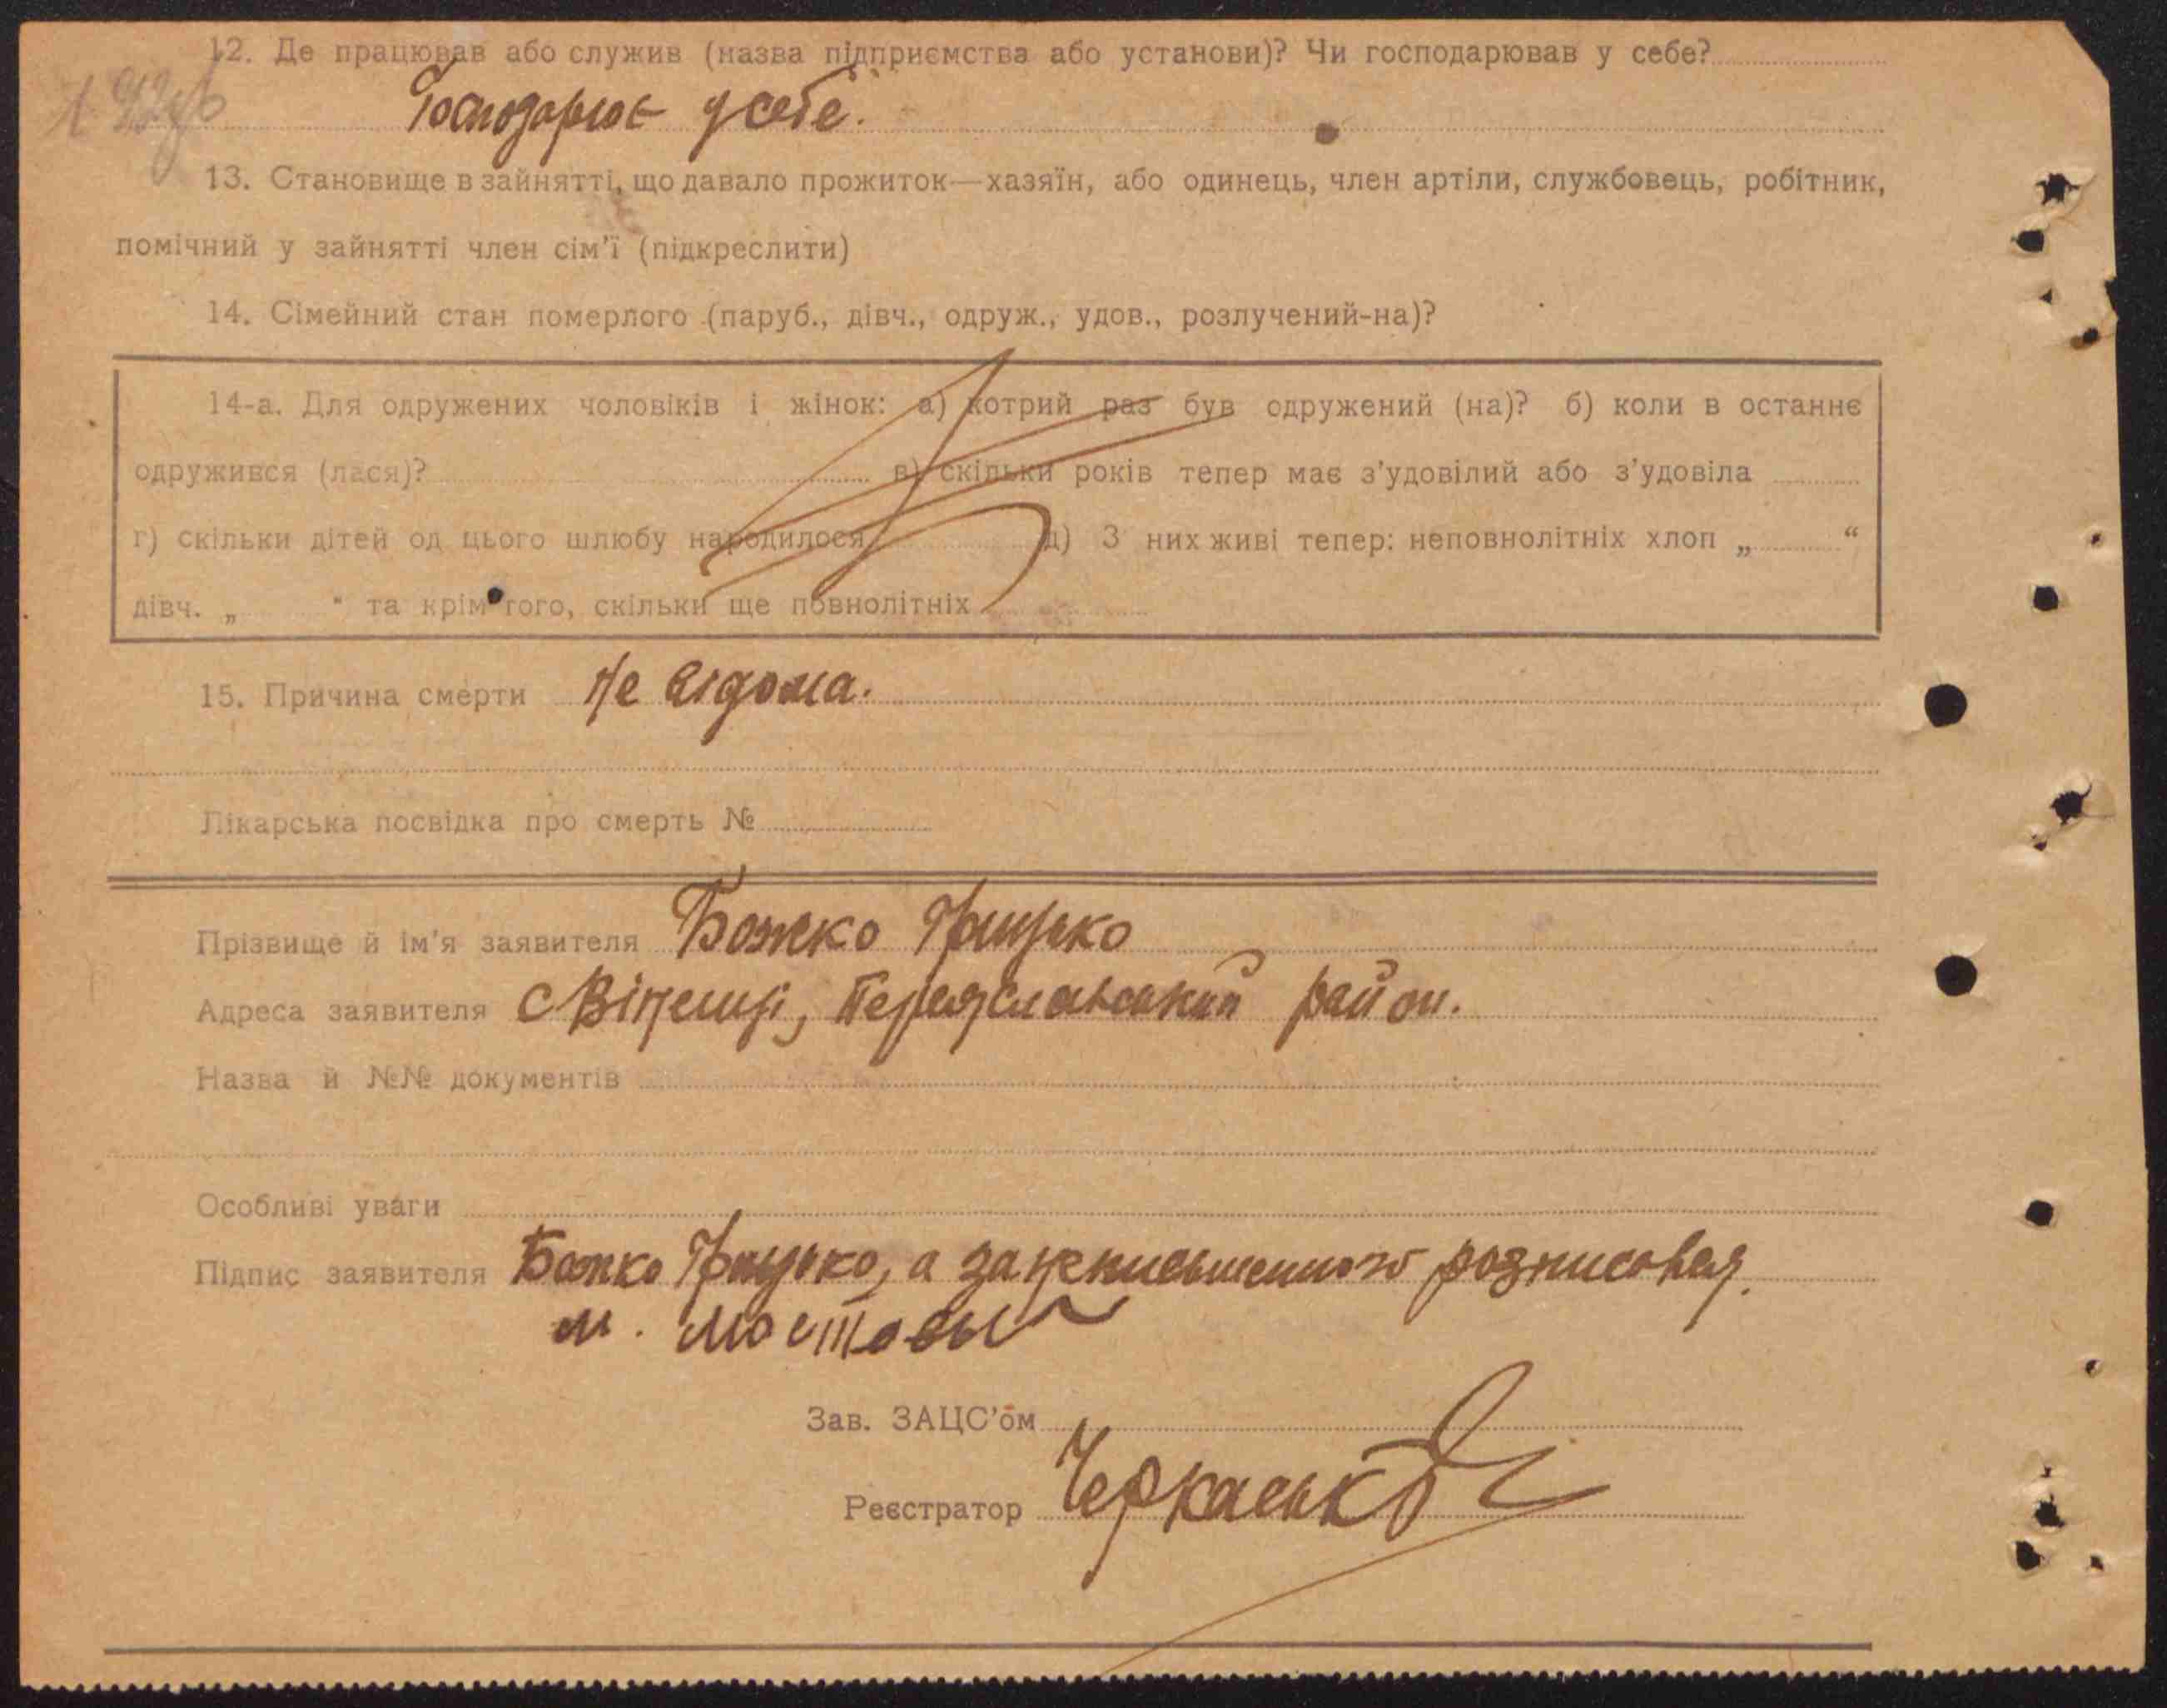 12. Де працював або служив (назва підприємства або установи)? Чи господарював у себе?
Господарює у себе.
13. Становище в зайнятті, що давало прожиток—хазяїн, або одинець, член артіли, службовець, робітник,
помічний у зайнятті член сім'ї (підкреслити)
14. Сімейний стан померлого (паруб., дівч., одруж., удов., розлучений-на)?
14-а. Для одружених чоловіків і жінок: а) котрий раз був одружений (на)? б) коли в останнє
одружився (лася)? в) скільки років тепер має з'удовілий або з'удовіла
г) скільки дітей од цього шлюбу народилося д) З них живі тепер: неповнолітніх хлоп „ “
дівч. „ “ та крім того, скільки ще повнолітніх
15. Причина смерти не відома.
Лікарська посвідка про смерть №
Прізвище й ім'я заявителя Божко Грицько
Адреса заявителя с Вінинці, Переяславський район.
Назва й №№ документів
Особливі уваги
Підпис заявителя Божко Грицько, а за неписьменного розписавсь
М. Мостовы
Зав. ЗАЦС'ом
Реєстратор Черкаськ